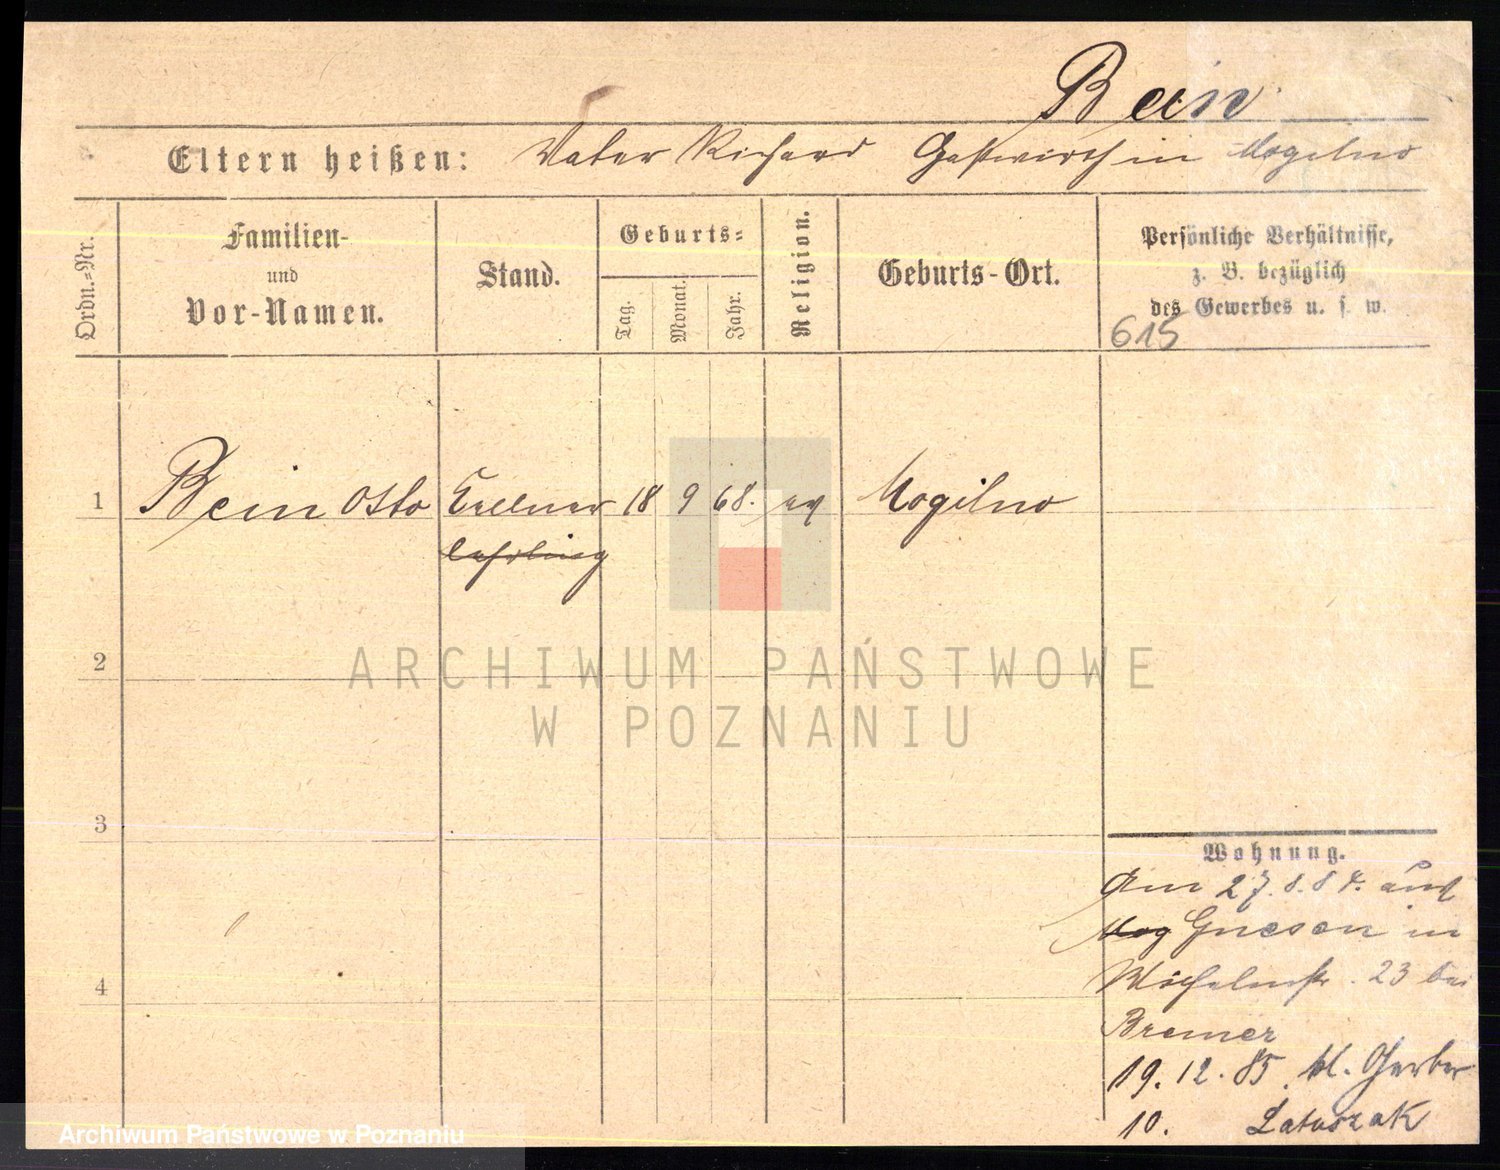 Bein
Eltern heißen: Vater Richard Gastwirth in Mogilno
Ordn.-Nr.
Familien-
und
Vor-Namen.
Stand.
Geburts-
Tag.
Monat.
Jahr.
Religion.
Geburts-Ort.
Persönliche Verhältnisse,
z. B. bezüglich
des Gewerbes u. s. w.
615
1 Bein Otto Kellner 18 9 68. ev Mogilno
lehrling
2
ARCHIWUM PAŃSTWOWE
W POZNANIU
3
4
Wohnung.
Am 27.8.84. aus
Mog Gnesen in
Wilhelmstr. 23 bei
Bremer
19.12.85. kl. Gerber
10. Lataszak
Archiwum Państwowe w Poznaniu